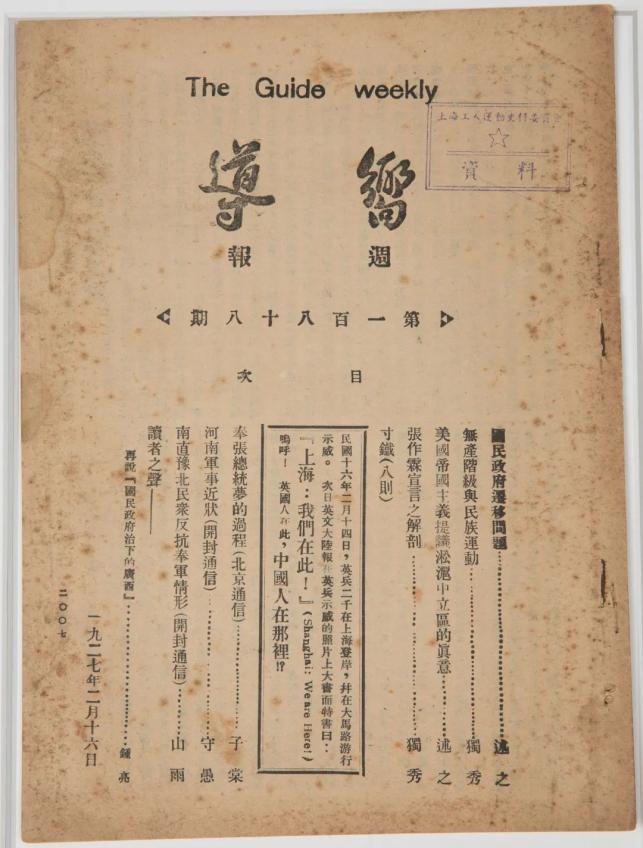 The Guide weekly
上海工人運動史料委員會
資料
嚮導
週報
第一百八十八期
目次
國民政府遷移問題……述之
無產階級與民族運動……獨秀
美國帝國主義提議淞滬中立區的眞意……述之
張作霖宣言之解剖……獨秀
寸鐵(八則)
民國十六年二月十四日,英兵二千在上海登岸,幷在大馬路游行
示威。次日英文大陸報在英兵示威的照片上大書而特書曰:
『上海:我們在此!』(Shanghai: We are Here!)
嗚呼! 英國人在此,中國人在那裡!?
奉張總統夢的過程(北京通信)……子棠
河南軍事近狀(開封通信)……守愚
南直豫北民衆反抗奉軍情形(開封通信)……山雨
讀者之聲——
再說『國民政府治下的廣西』……鍾亮
一九二七年二月十六日
二〇〇七